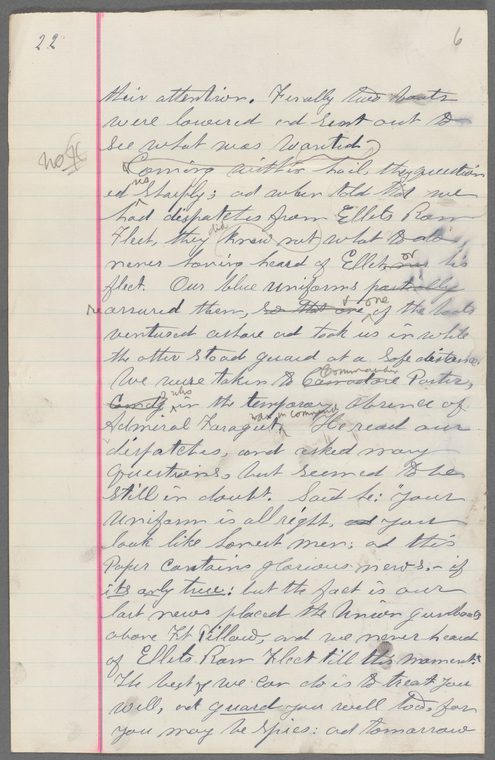 22 6
their attention. Finally two boats
were lowered and sent out to
see what was wanted.
No ¶
Coming within hail, they question
ed us sharply; and when told that we
had dispatches from Ellets Ram
Fleet, they did know not what to do,
never having heard of Ellet or his
fleet. Our blue uniforms partially
reassured them, so that one & one of the boats
ventured ashore and took us in while
the other stood guard at a safe distance.
We were taken to Commodore Commander Porter,
Comdg who in the temporary absence of
Admiral Farragut, was in command. He read our
dispatches, and asked many
questions, but seemed to be
still in doubt. Said he: "Your
uniform is all right, and you
look like honest men; and this
Paper contains glorious news - if
its only true: but the fact is our
last news placed the Union gunboats
above Ft Pillow, and we never heard
of Ellets Ram Fleet till this moment.
The best we can do is to treat you
well, and guard you well too, for
you may be spies: and tomorrow